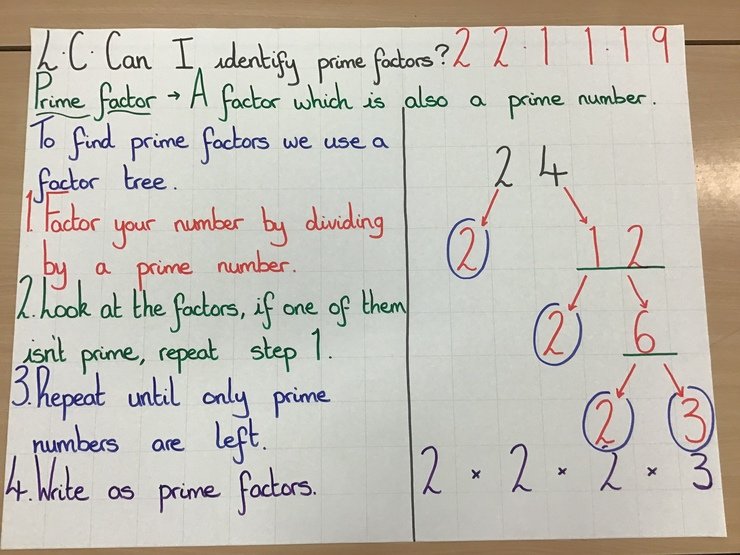 L.C. Can I identify prime factors? 22.11.19
Prime factor → A factor which is also a prime number.
To find prime factors we use a
factor tree.
1. Factor your number by dividing
by a prime number.
2. Look at the factors, if one of them
isn't prime, repeat step 1.
3. Repeat until only prime
numbers are left.
4. Write as prime factors.
24
2 12
2 6
2 3
2 × 2 × 2 × 3